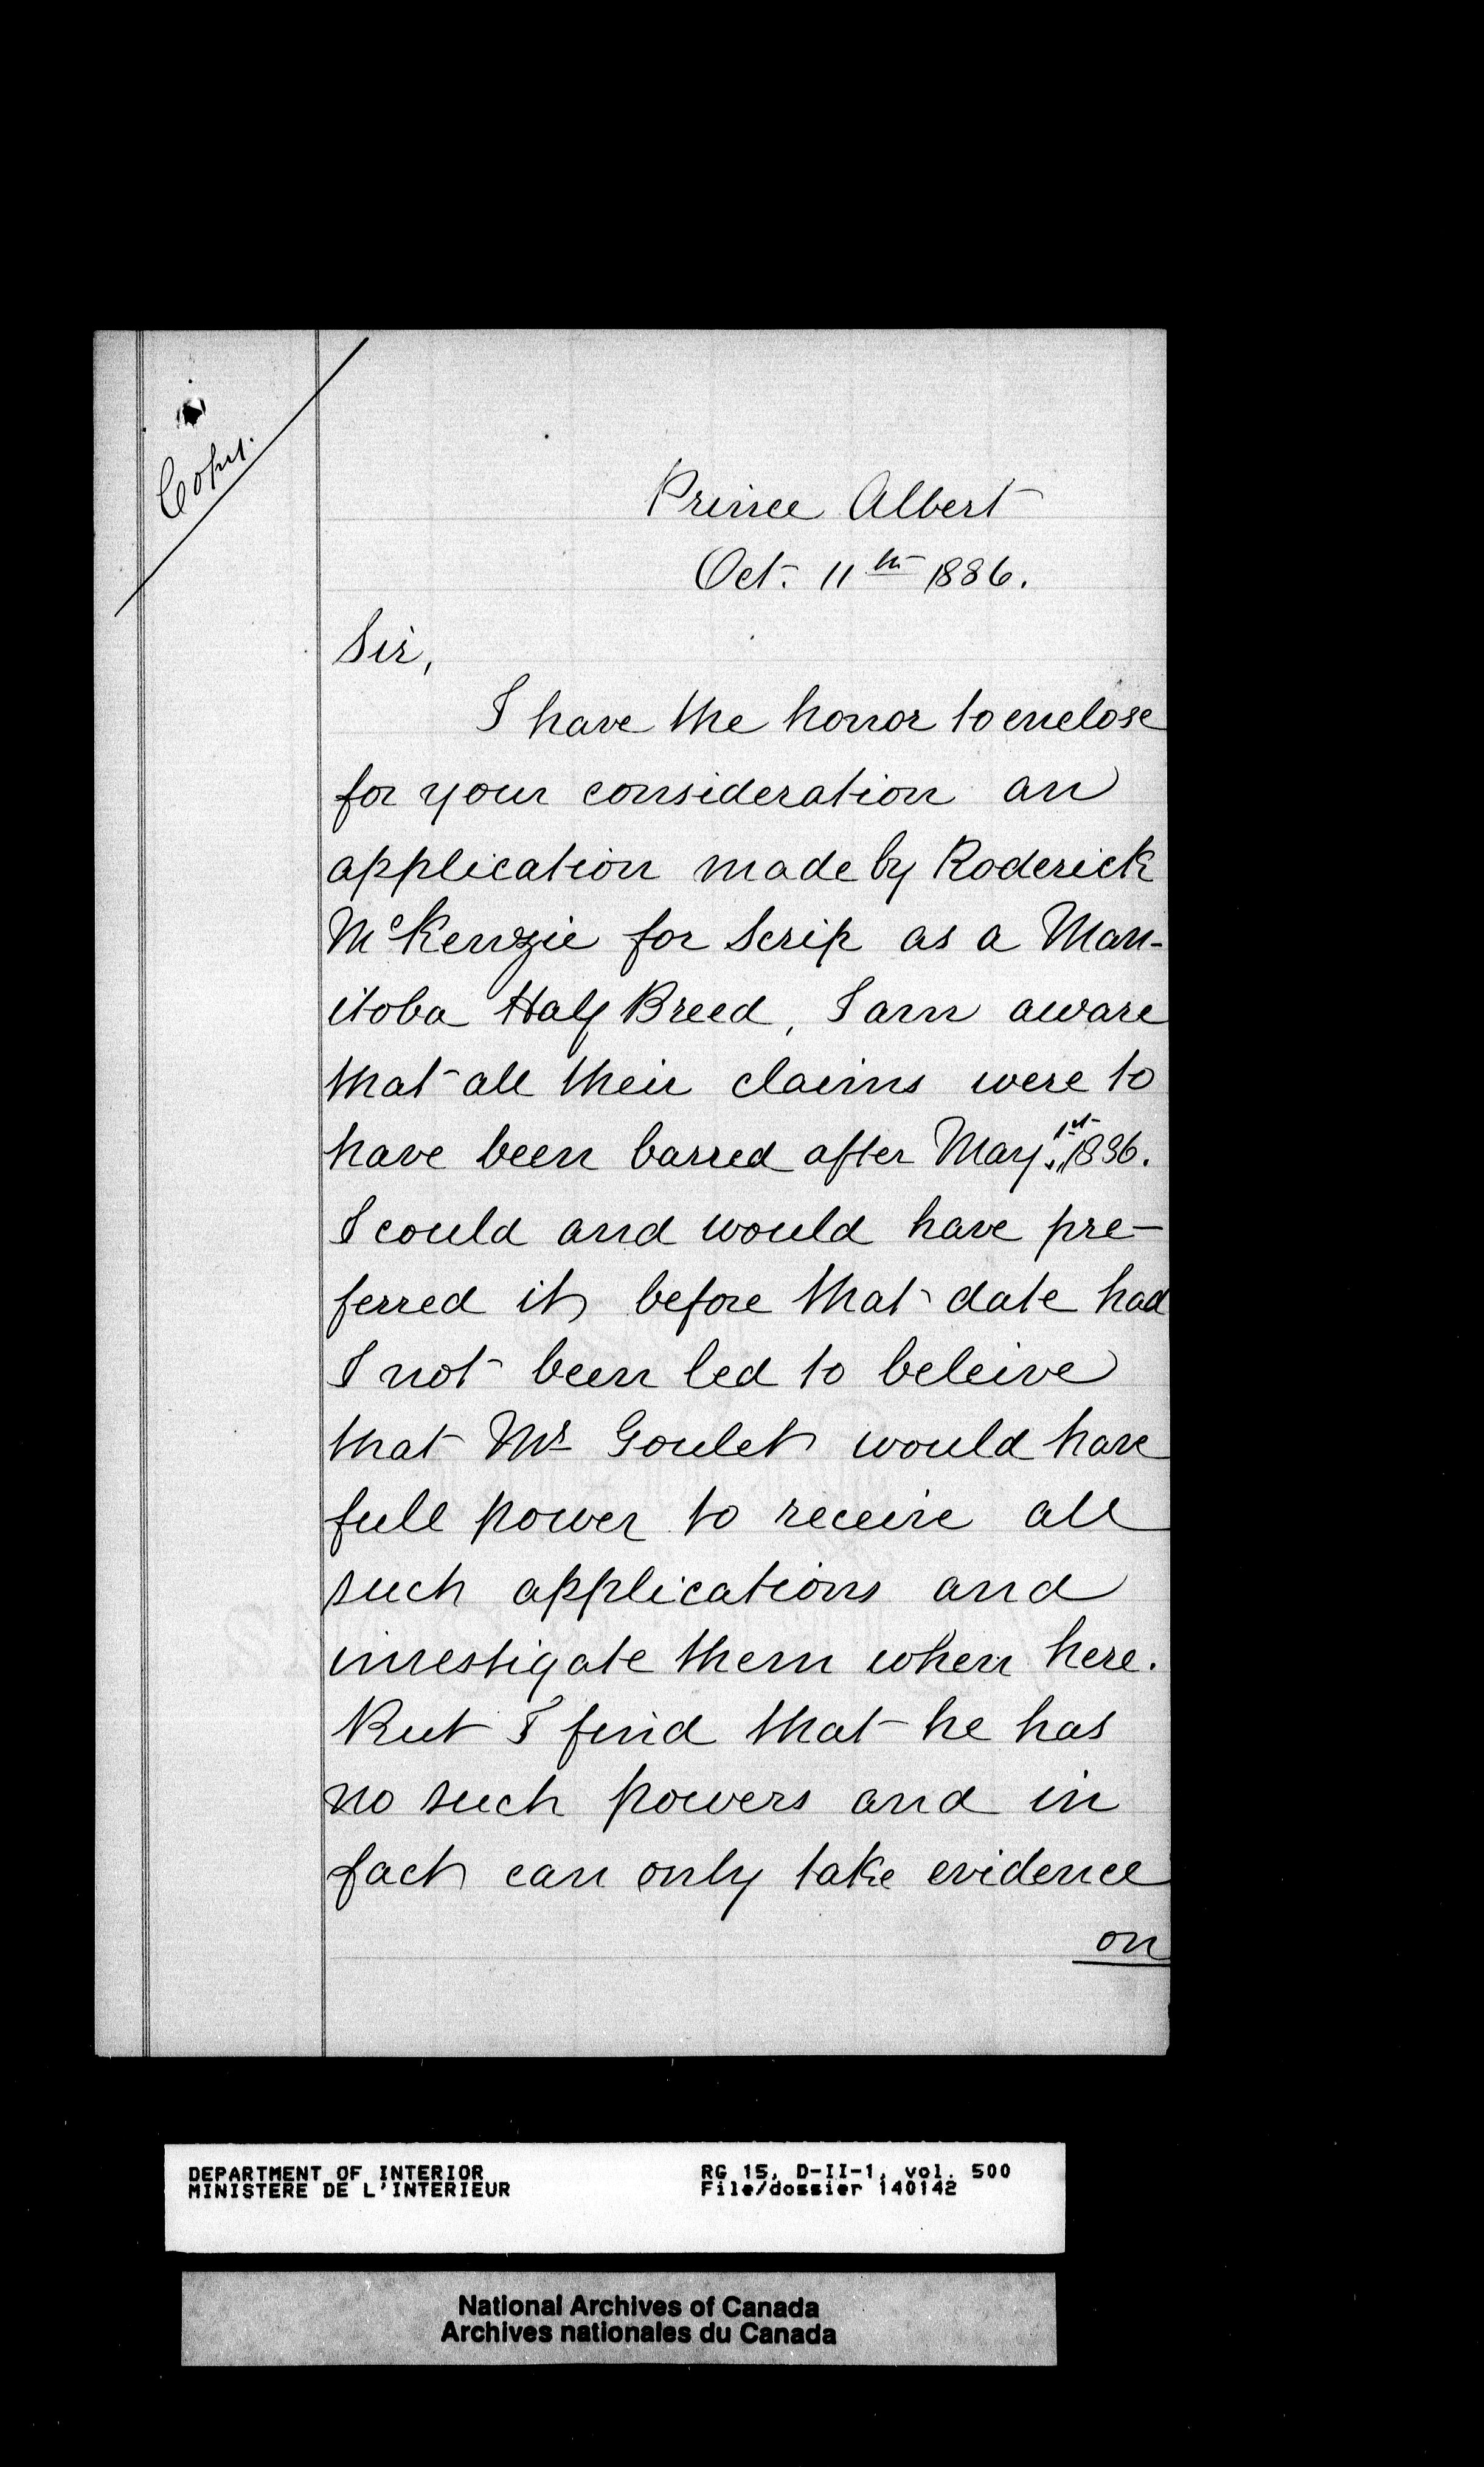 Copy.
Prince Albert
Oct. 11th 1886.
Sir,
I have the honor to enclose
for your consideration an
application made by Roderick
McKenzie for Scrip as a Man-
itoba Half Breed, I am aware
that all their claims were to
have been barred after May 1st 1886.
I could and would have pre-
ferred it before that date had
I not been led to beleive
that Mr Goulet would have
full power to receive all
such applications and
investigate them when here.
But I find that he has
no such powers and in
fact can only take evidence
on
DEPARTMENT OF INTERIOR RG 15, D-II-1, vol. 500
MINISTERE DE L'INTERIEUR File/dossier 140142
National Archives of Canada
Archives nationales du Canada